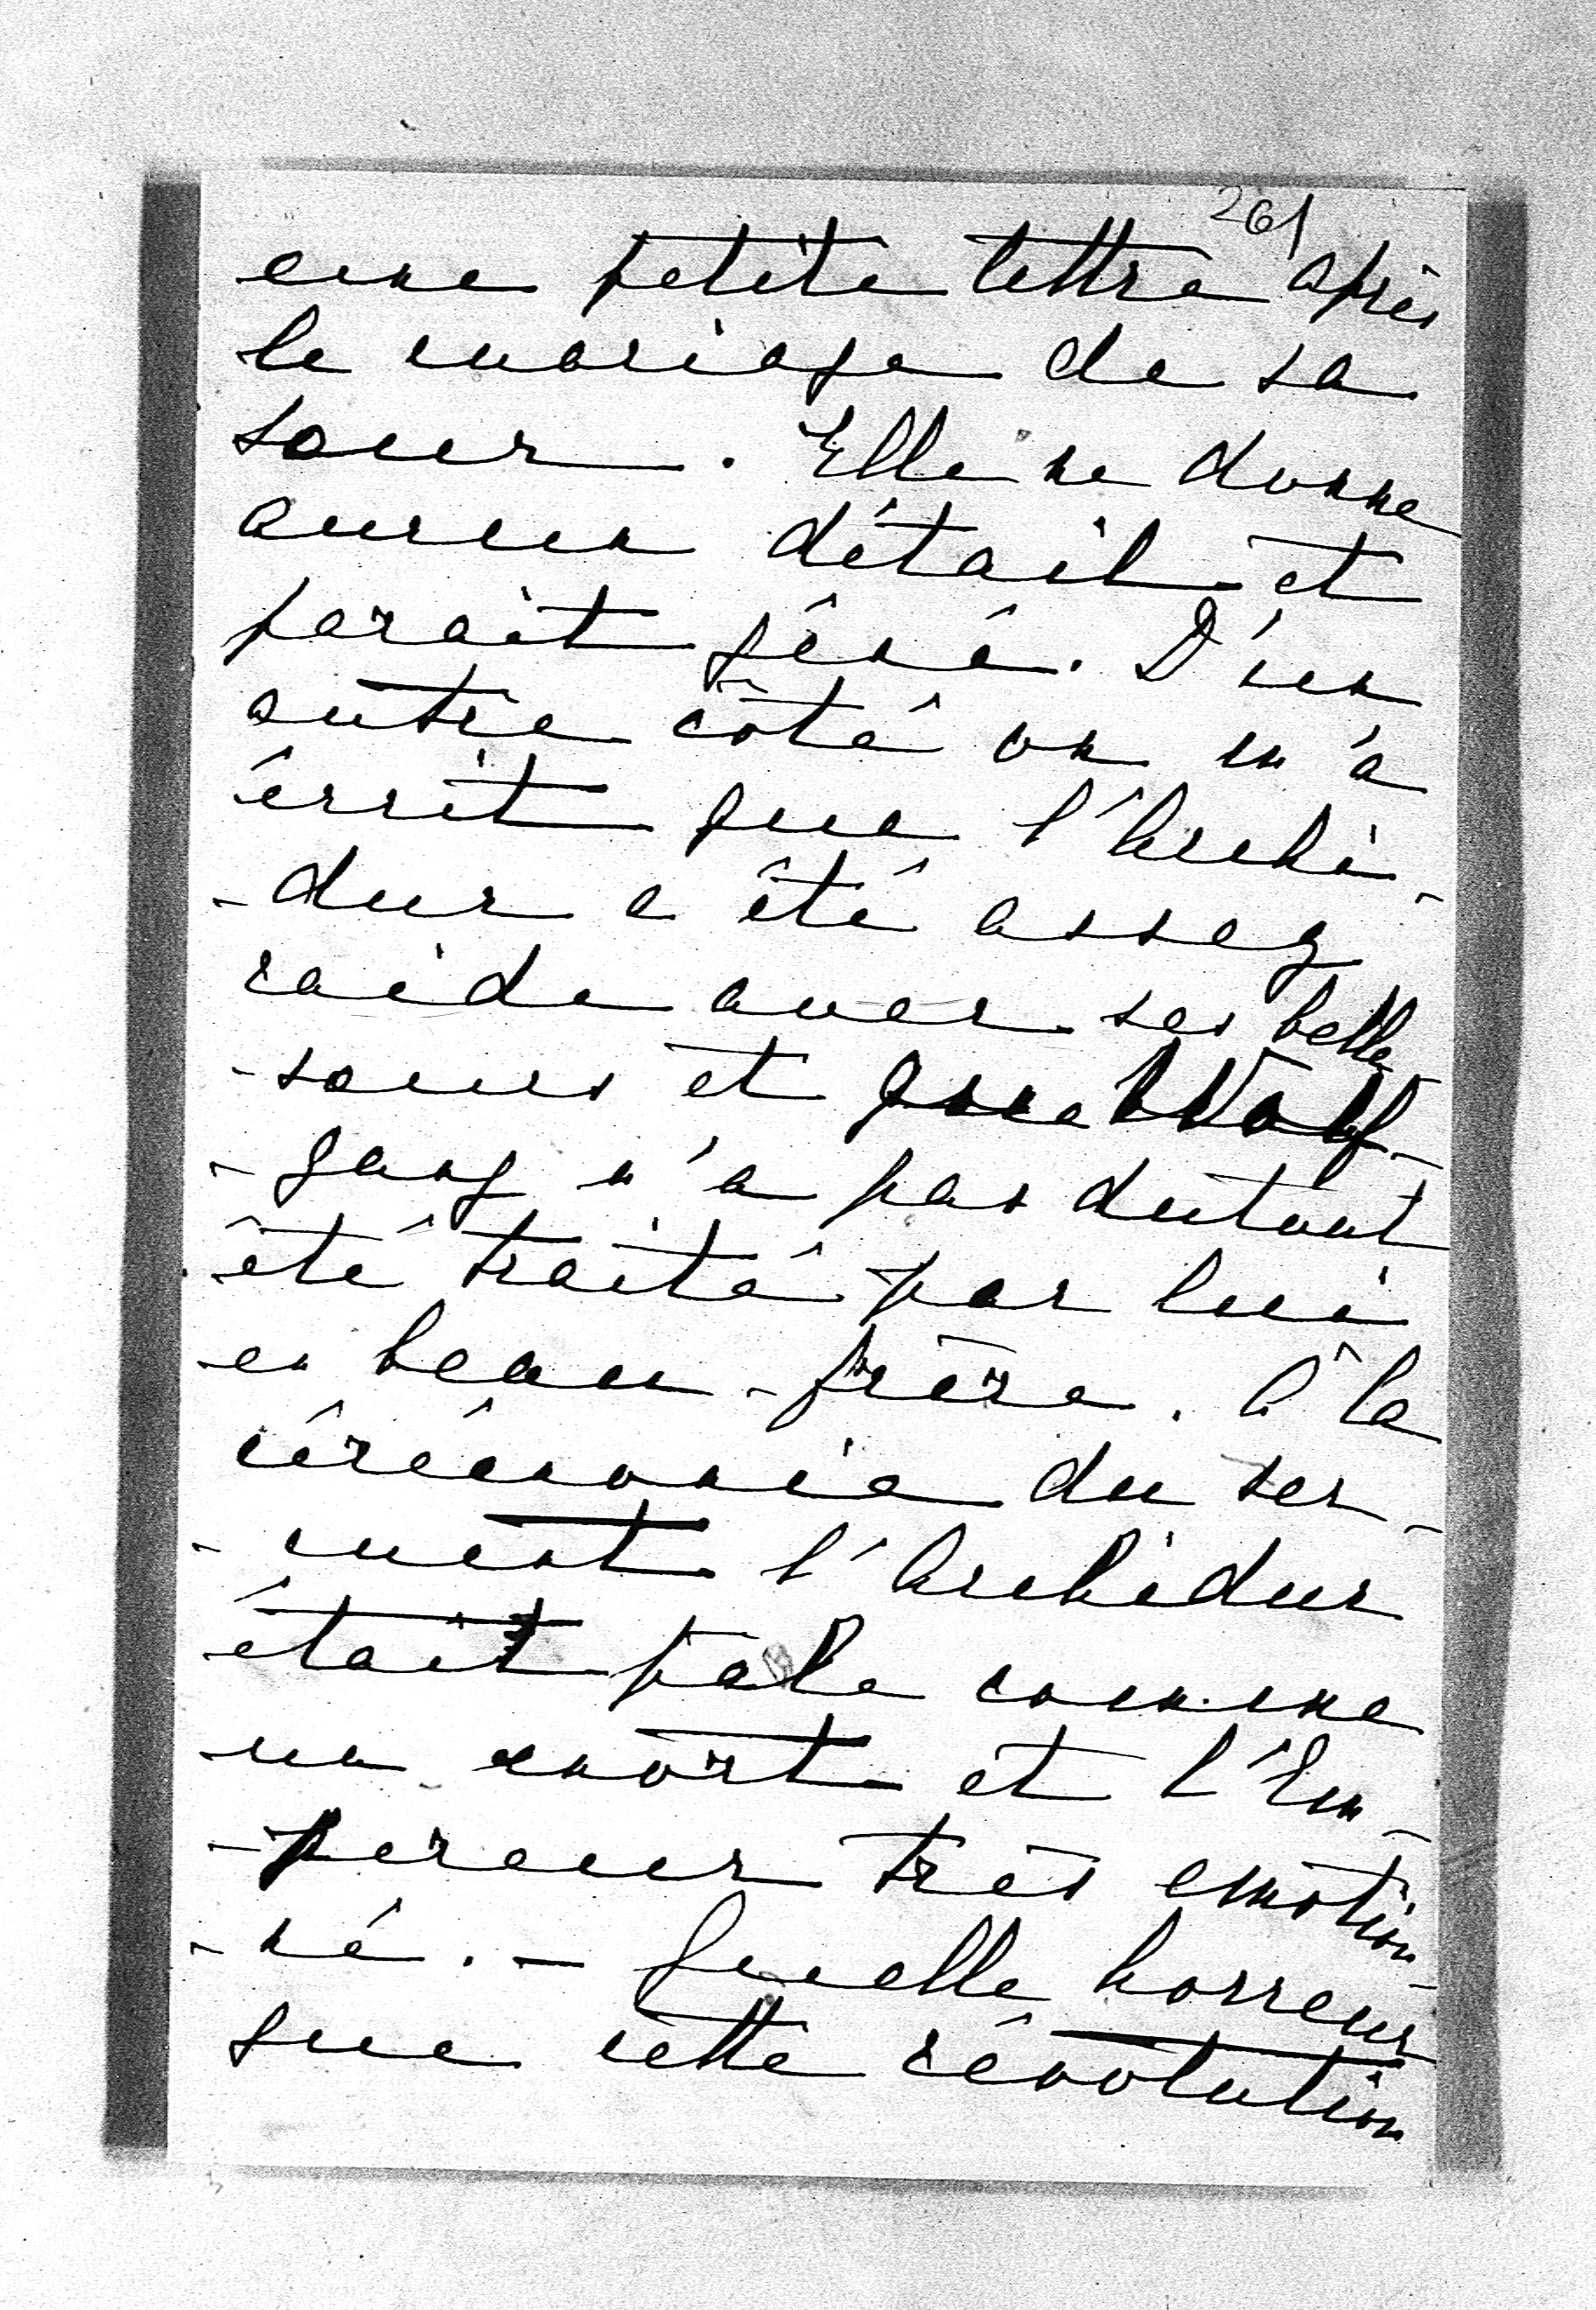 261
une petite lettre après
le mariage de sa
soeur. Elle ne donne
aucun détail et
parait gêné. D'un
autre côté on m'a
écrit que l'Archi-
-duc a été assez
raide avec ses belle
-soeurs et que Wolf-
-gang n'a pas dutout
été traité par lui
en beau-frère. A la
cérémonie du ser-
-ment l'Archiduc
était pale comme
un mort et l'Em-
-pereur très emotion-
-né. – Quelle horreur
que cette révolution